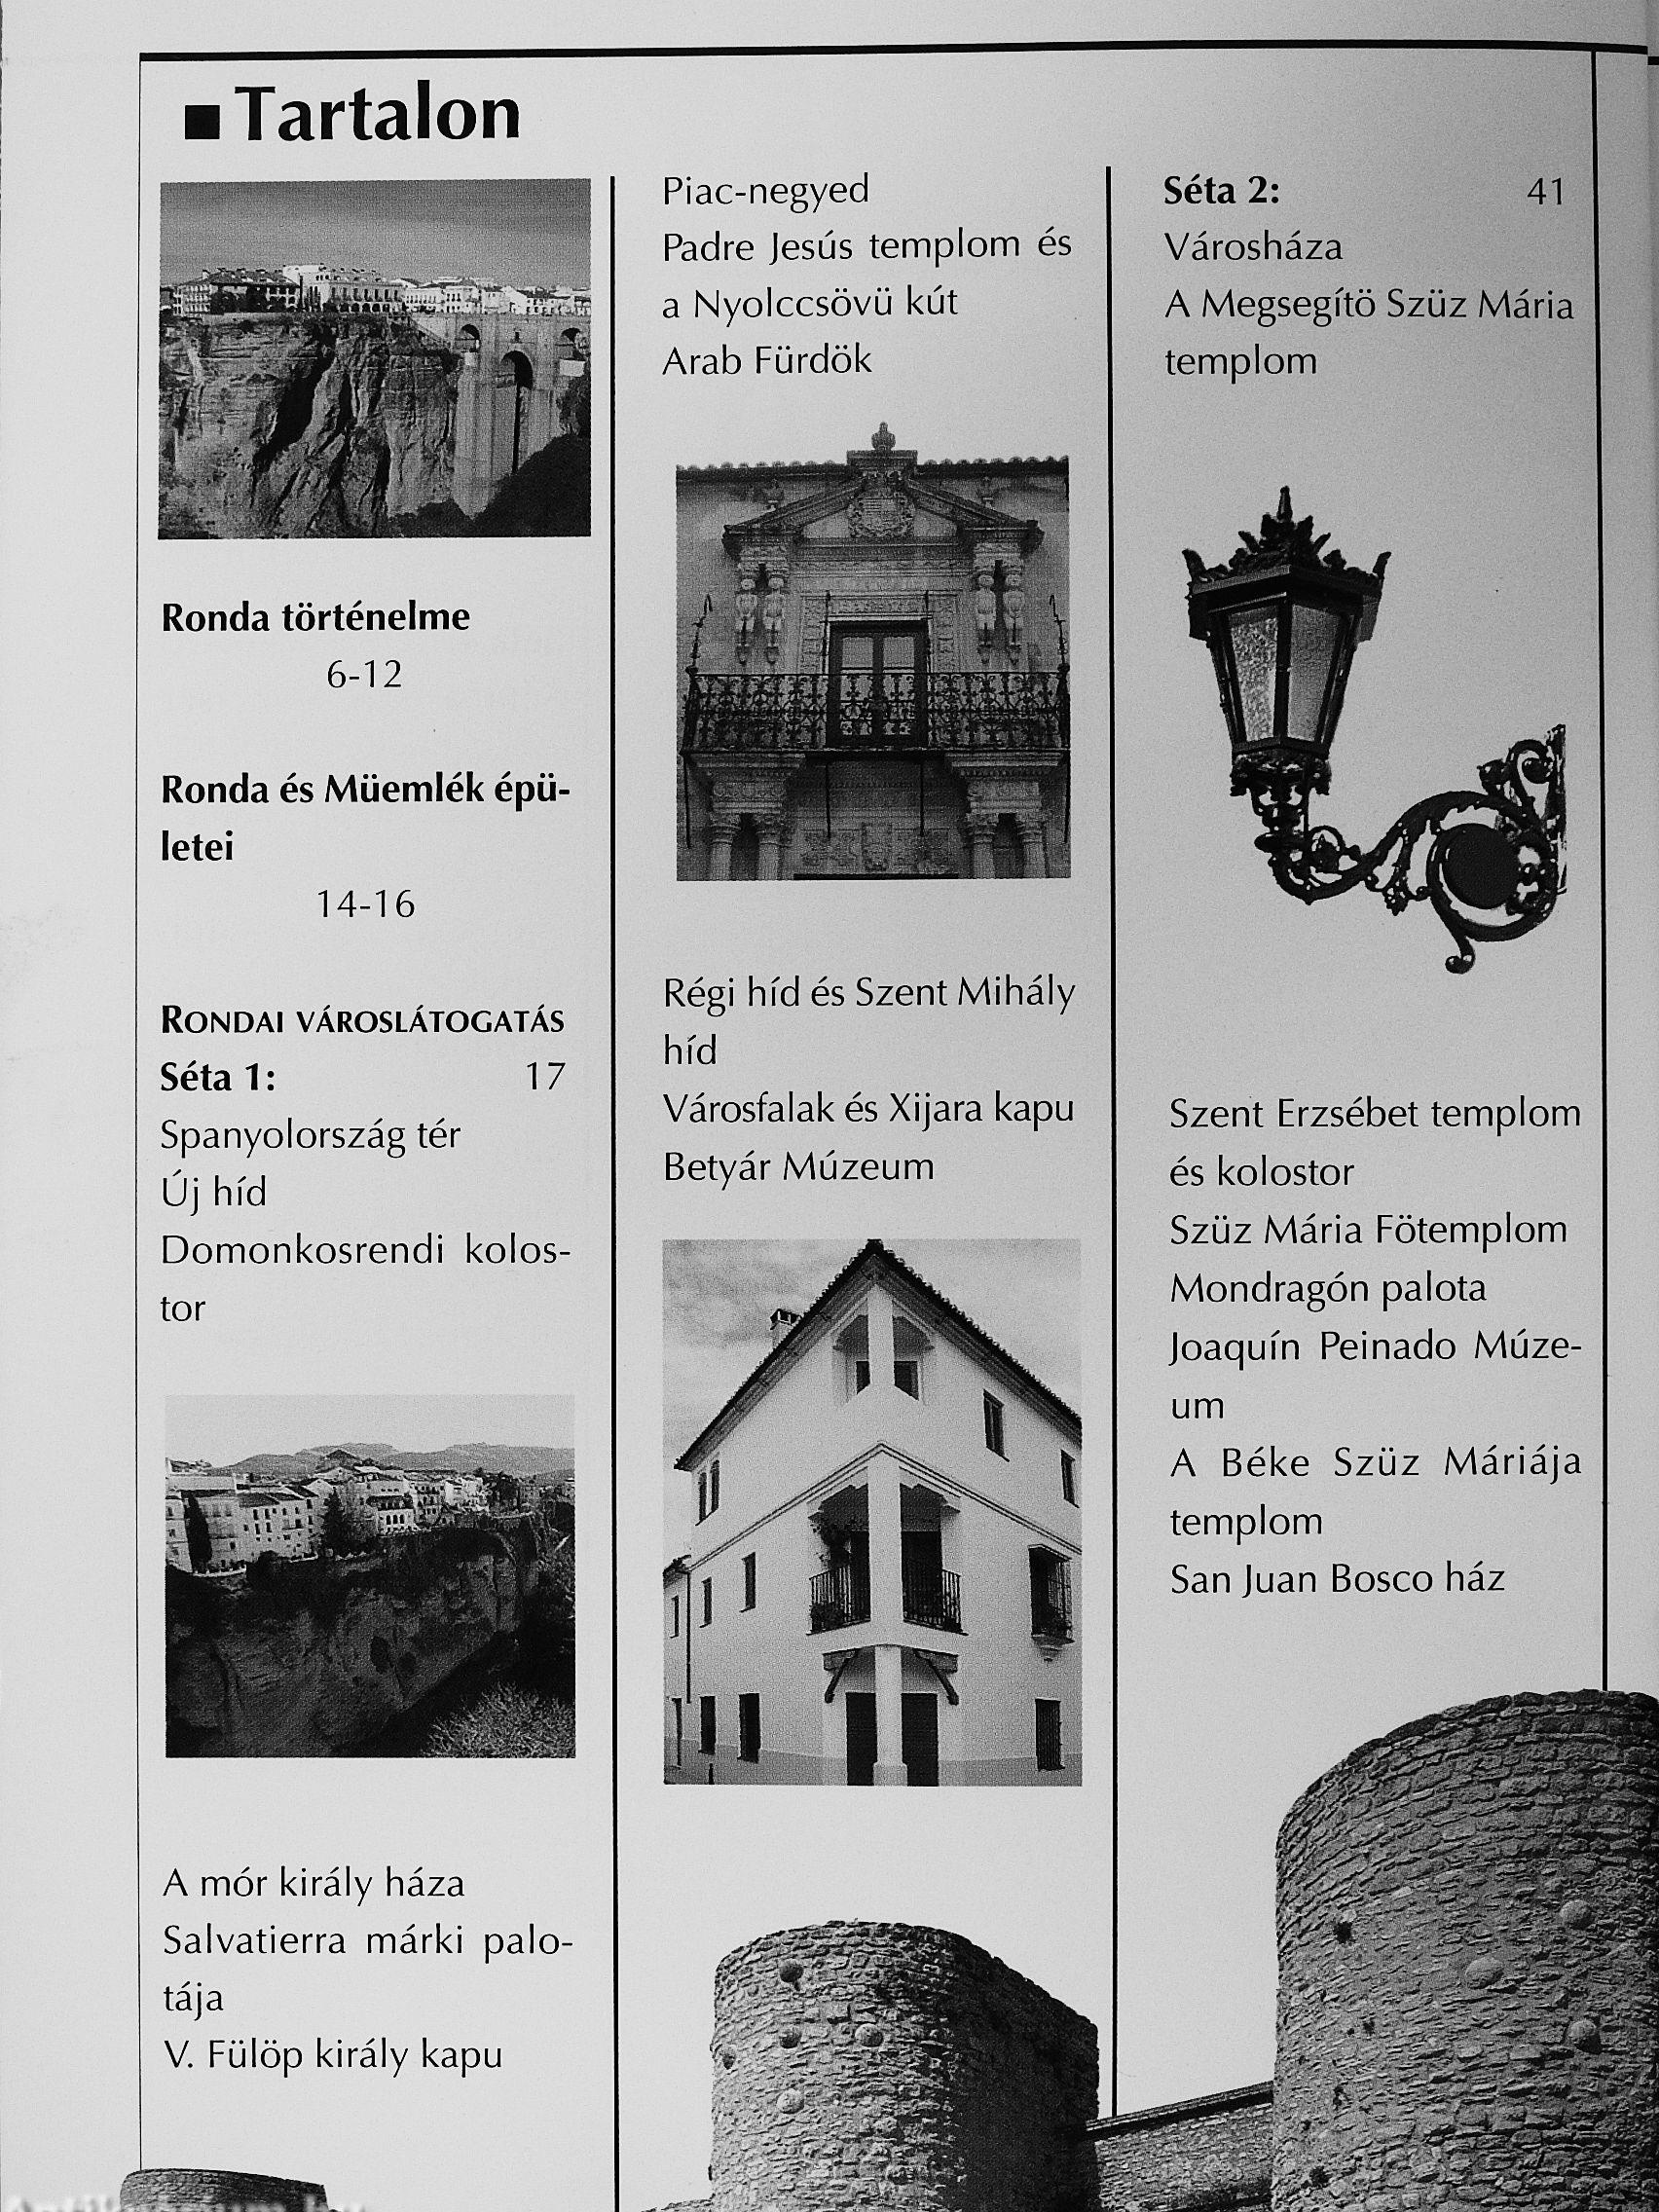 ■ Tartalon
Ronda történelme
6-12
Ronda és Müemlék épü-
letei
14-16
RONDAI VÁROSLÁTOGATÁS
Séta 1: 17
Spanyolország tér
Új híd
Domonkosrendi kolos-
tor
A mór király háza
Salvatierra márki palo-
tája
V. Fülöp király kapu
Piac-negyed
Padre Jesús templom és
a Nyolccsövü kút
Arab Fürdök
Régi híd és Szent Mihály
híd
Városfalak és Xijara kapu
Betyár Múzeum
Séta 2: 41
Városháza
A Megsegítö Szüz Mária
templom
Szent Erzsébet templom
és kolostor
Szüz Mária Fötemplom
Mondragón palota
Joaquín Peinado Múze-
um
A Béke Szüz Máriája
templom
San Juan Bosco ház